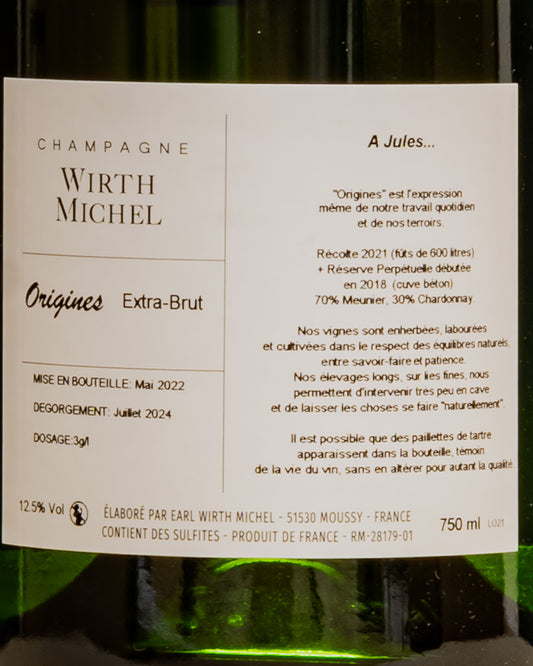 CHAMPAGNE
WIRTH
MICHEL
Origines Extra-Brut
MISE EN BOUTEILLE: Mai 2022
DEGORGEMENT: Juillet 2024
DOSAGE:3g/l
A Jules...
"Origines" est l'expression
même de notre travail quotidien
et de nos terroirs.
Récolte 2021 (fûts de 600 litres)
+ Réserve Perpétuelle débutée
en 2018 (cuve béton)
70% Meunier, 30% Chardonnay.
Nos vignes sont enherbées, labourées
et cultivées dans le respect des équilibres naturels,
entre savoir-faire et patience.
Nos élevages longs, sur lies fines, nous
permettent d'intervenir très peu en cave
et de laisser les choses se faire "naturellement".
Il est possible que des paillettes de tartre
apparaissent dans la bouteille, témoin
de la vie du vin, sans en altérer pour autant la qualité.
12.5% Vol
ÉLABORÉ PAR EARL WIRTH MICHEL - 51530 MOUSSY - FRANCE
CONTIENT DES SULFITES - PRODUIT DE FRANCE - RM-28179-01
750 ml L021